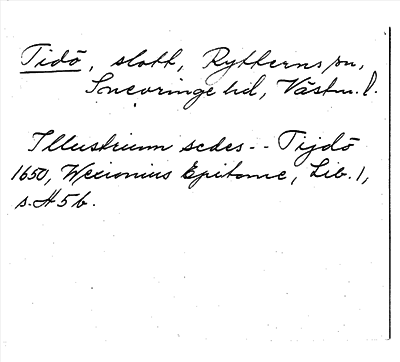 Tidö, slott, Rytterns sn,
Snevringe hd, Västm. l.
Illustrium sedes -- Tijdö
1650, Wexionius Epitome, Lib. 1,
s. H 5 b.